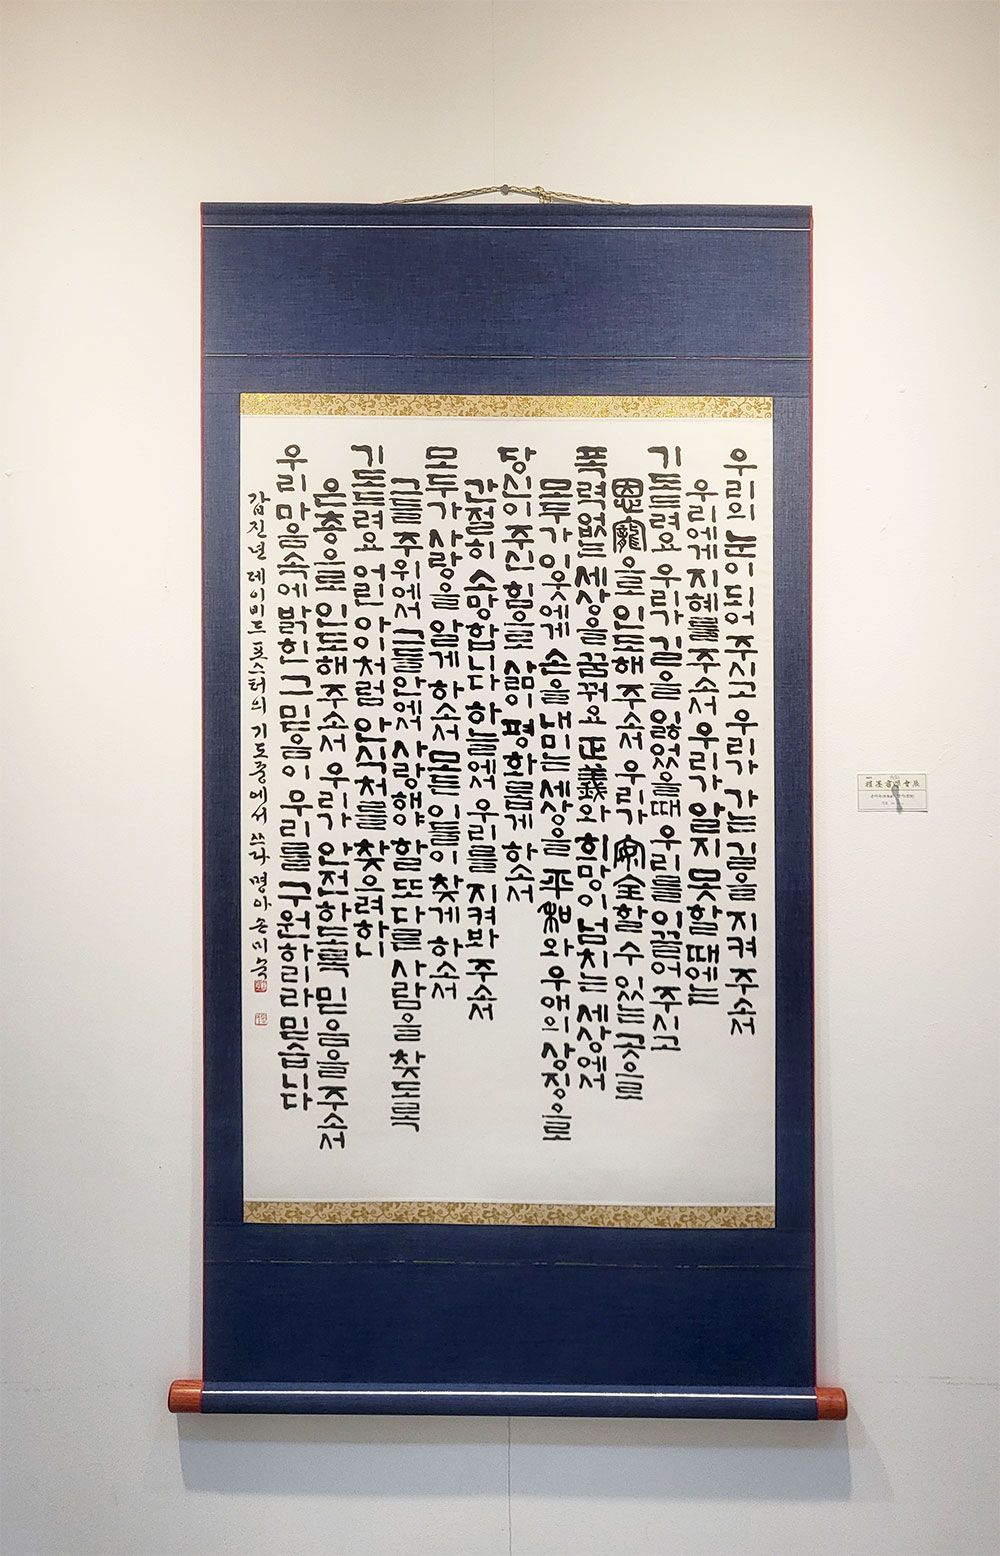 우리의 눈이 되어 주시고 우리가 가는 길을 지켜 주소서
우리에게 지혜를 주소서 우리가 알지 못할 때에는
기도드려요 우리가 길을 잃었을 때 우리를 이끌어 주시고
恩寵으로 인도해 주소서 우리가 安全할 수 있는 곳으로
폭력 없는 세상을 꿈꿔요 正義와 희망이 넘치는 세상에서
모두가 이웃에게 손을 내미는 세상을 平和와 우애의 상징으로
당신이 주신 힘으로 삶이 평화롭게 하소서
간절히 소망합니다 하늘에서 우리를 지켜봐 주소서
모두가 사랑을 알게 하소서 모든 이들이 찾게 하소서
그들 주위에서 그들 안에서 사랑해야 할 또 다른 사람을 찾도록
기도드려요 어린 아이처럼 안식처를 찾으려 하니
은총으로 인도해 주소서 우리가 안전하도록 믿음을 주소서
우리 마음속에 밝힌 그 믿음이 우리를 구원하리라 믿습니다
갑진년 데이비드 포스터의 기도중에서 쓰다 명아 손미숙